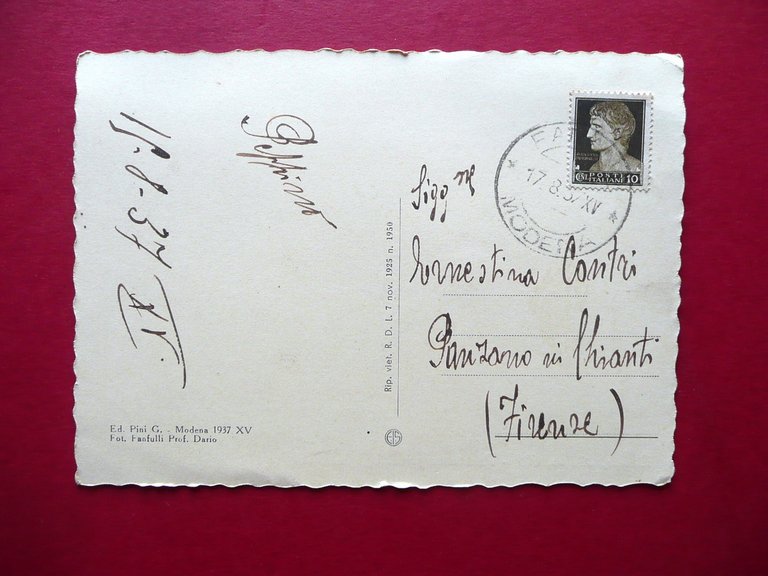 15-8-37 XV.
Beppino
Ed. Pini G. - Modena 1937 XV
Fot. Fanfulli Prof. Dario
Rip. viet. R. D. L. 7 nov. 1925 n. 1950
POSTE
ITALIANE 10
17.8.37 XV
MODENA
Sigg.ne
Ernestina Contri
Panzano in Chianti
(Firenze)